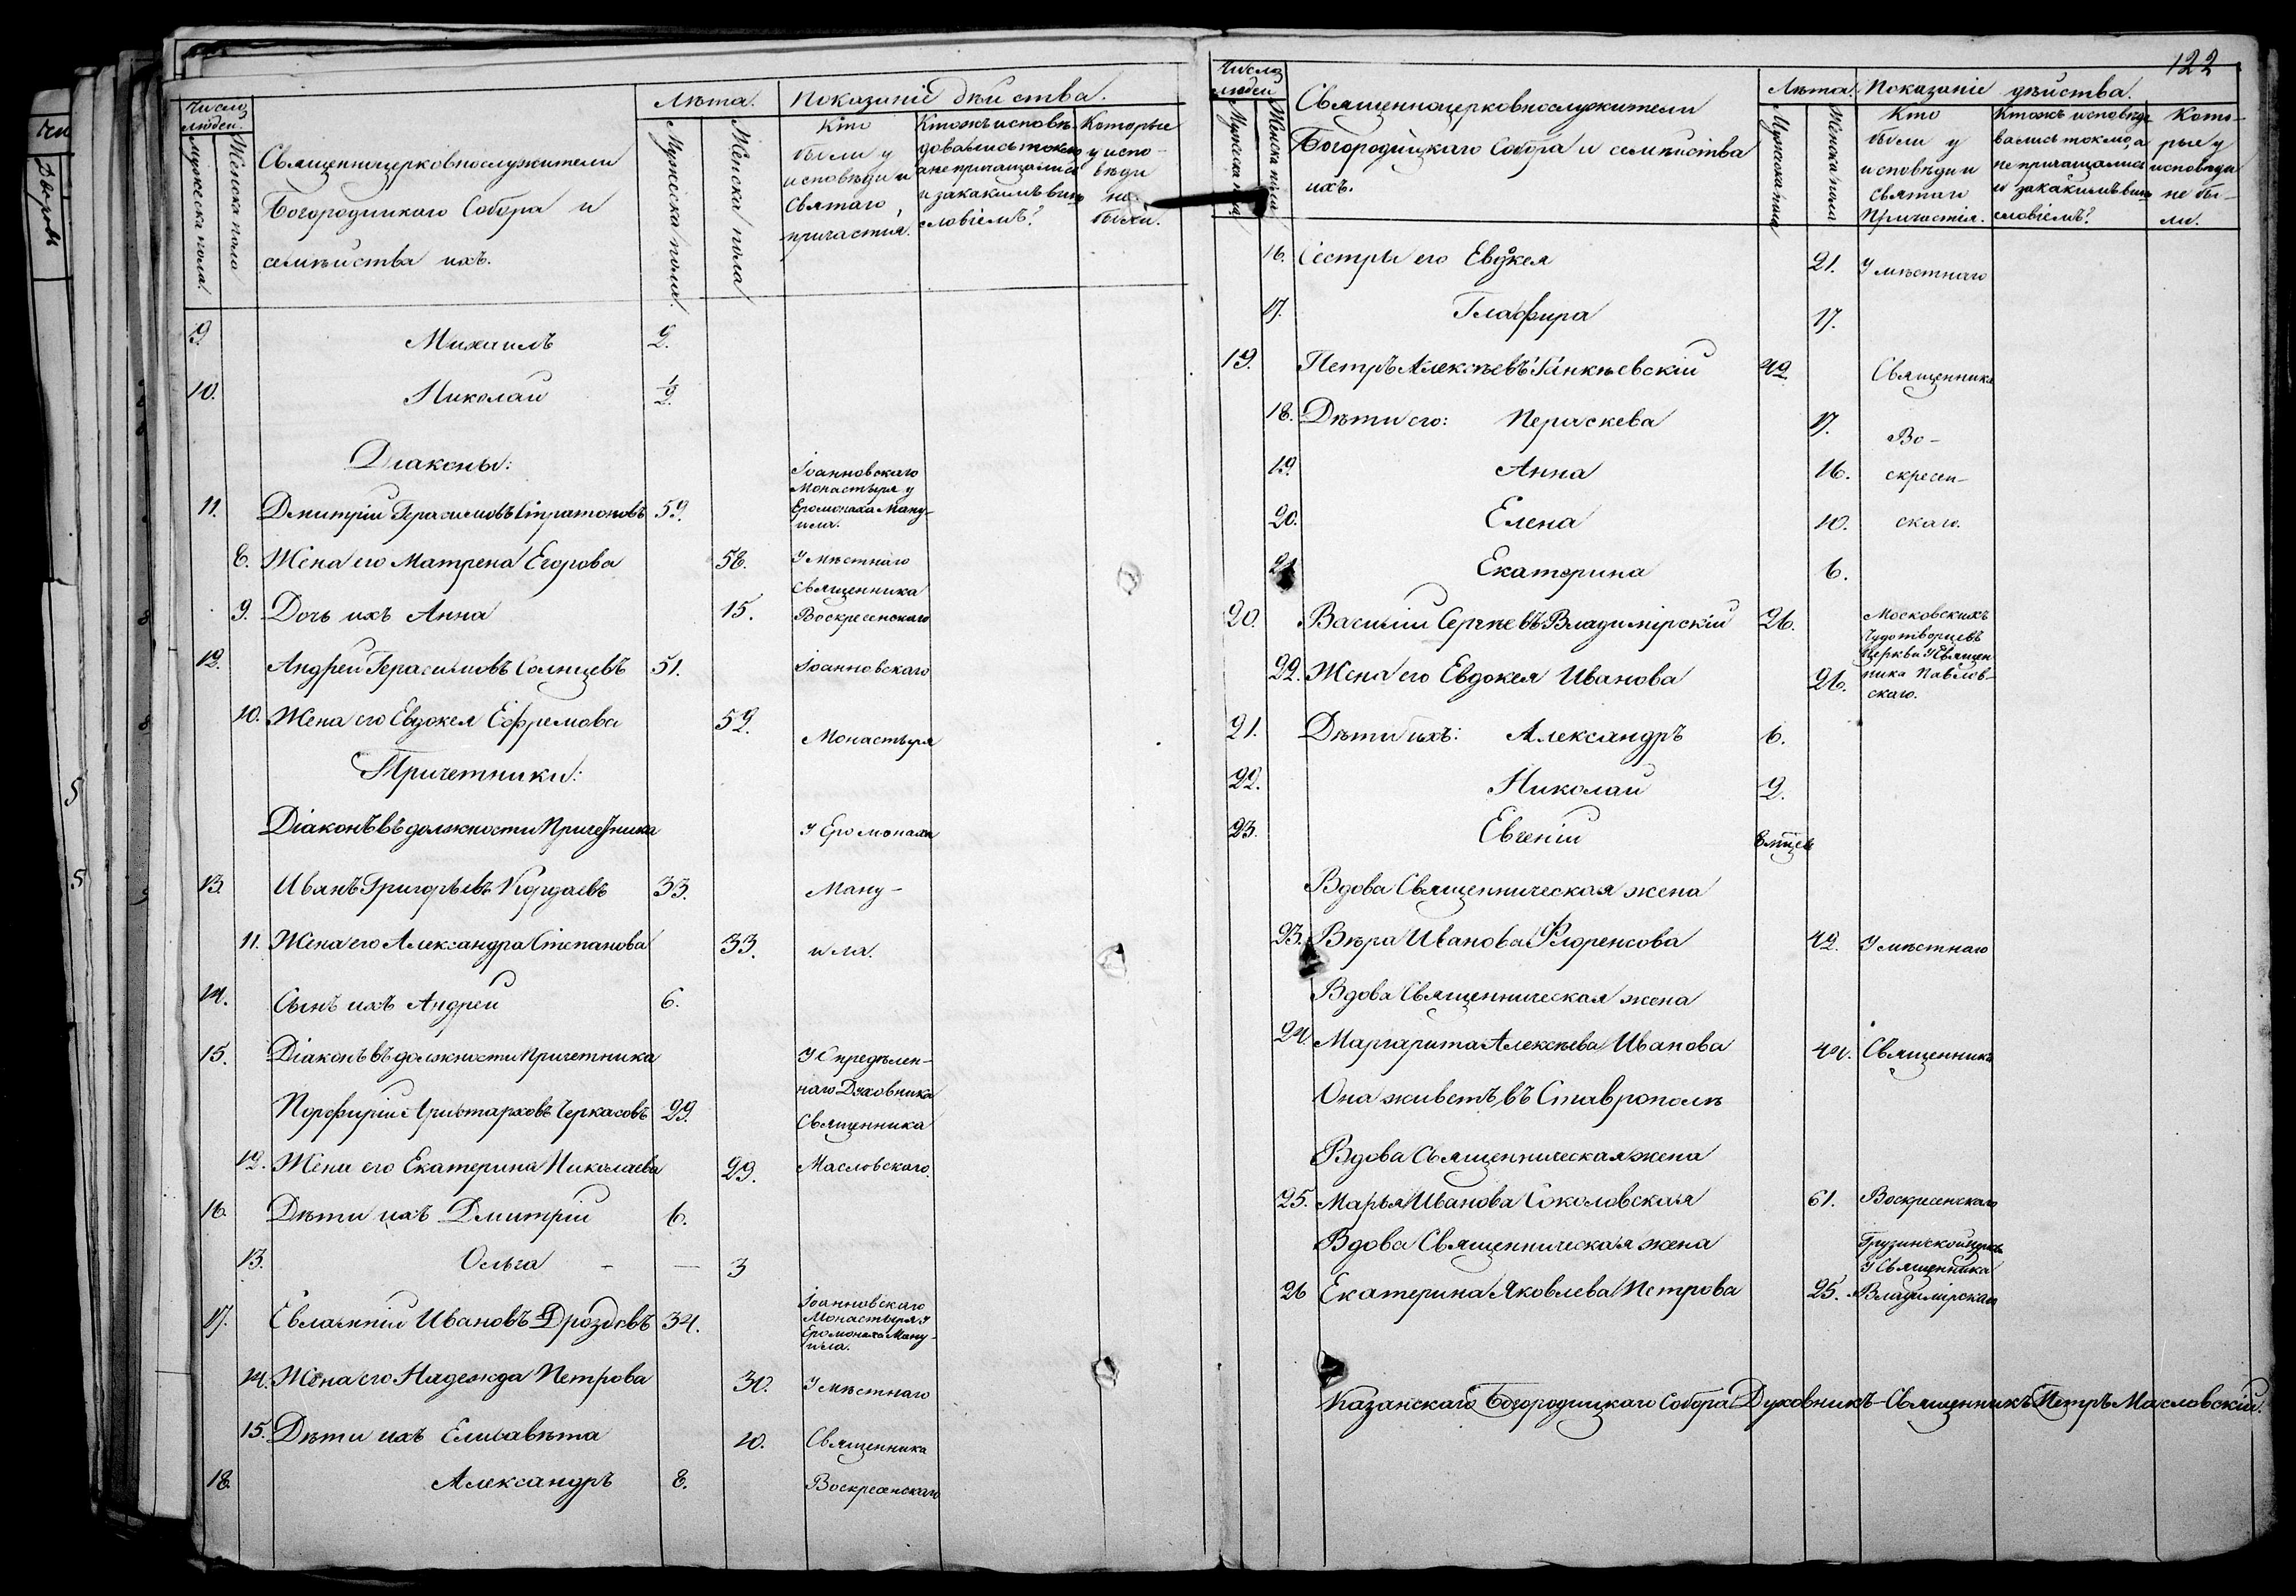 Число людей.
Мужеска пола.
Женска пола
Священноцерковнослужители
Богородицкаго Собора и
семѣйства ихъ.
Лѣта.
Мужеска пола.
Женска пола
Показаніе дѣйства.
Кто
были у
исповѣди и
Святаго
причастія.
Ктожъ исповѣ-
довались токмо
а не причащались
и за какимъ вино
словіемъ?
Которые
у испо-
вѣди
не
были.
9. Михаилъ 2.
10. Николай 1/2.
Діаконы:
11. Дмитрій Герасимовъ Стратоновъ 59. Іоанновскаго
Монастыря у
Еромонаха Ману-
ила.
8. Жена его Матрена Егорова 58. У мѣстнаго
Священника
9. Дочь ихъ Анна 15. Воскресенскаго
12. Андрей Герасимовъ Солнцевъ 51. Іоанновскаго
10. Жена его Евдокея Ефремова 52. Монастыря
Причетники:
Діаконъ въ должности Причетника У Еромонаха
13. Иванъ Григорьевъ Кордаевъ 33. Ману-
11. Жена его Александра Степанова 33. ила.
14. Сынъ ихъ Андрей 6.
15. Діаконъ въ должности Причетника У Опредѣлен-
наго Духовника
Порфирій Аристарховъ Черкасовъ 29. Священника
12. Жена его Екатерина Николаева 29. Масловскаго.
16. Дѣти ихъ Дмитрій 6.
13. Ольга - — 3
17. Евлампій Ивановъ Дроздовъ 34. Іоанновскаго
Монастыря у
Еромонаха Ману-
ила.
14. Жена его Надежда Петрова 30. У мѣстнаго
15. Дѣти ихъ Елисавѣта 10. Священника
18. Александръ 8. Воскресенскаго
122
Число людей
Мужеска пола
Женска пола
Священноцерковнослужители
Богородицкаго Собора и семѣйства
ихъ.
Лѣта.
Мужеска пола
Женска пола
Показаніе дѣйства.
Кто
были у
исповѣди и
святаго
Причастія.
Ктожъ исповѣдо
вались токмо, а
не причащались
и за какимъ вино
словіемъ?
Кото-
рые у
исповѣди
не бы-
ли.
16. Сестры его Евдокея 21. У мѣстнаго
17. Глафира 17.
19. Петръ Алексѣевъ Ганкѣевскій 42. Священника
18. Дѣти его: Пераскева 17. Во-
19. Анна 16. скресен-
20. Елена 10. скаго.
21 Екатерина 6.
20. Василій Сергѣевъ Владимірскій 26. Московскихъ
Чудотворцевъ
Церкви У Священ
22. Жена его Евдокея Иванова 26. ника Павлов-
скаго.
21. Дѣти ихъ: Александръ 6.
22. Николай 2.
23. Евгеній 8 мѣцев
Вдова Священническая жена
23. Вѣра Иванова Флоренсова 42. У мѣстнаго
Вдова Священническая жена
24. Маргарита Алексѣева Иванова 44. Священника
Она живетъ въ Ставрополѣ
Вдова Священническая жена
25. Марья Иванова Соколовская 61. Воскресенскаго
Вдова Священническая жена Грузинской церкв
У Священника
26 Екатерина Яковлева Петрова 25. Владимірскаго
Казанскаго Богородицкаго Собора Духовникъ Священникъ Петръ Масловскій.